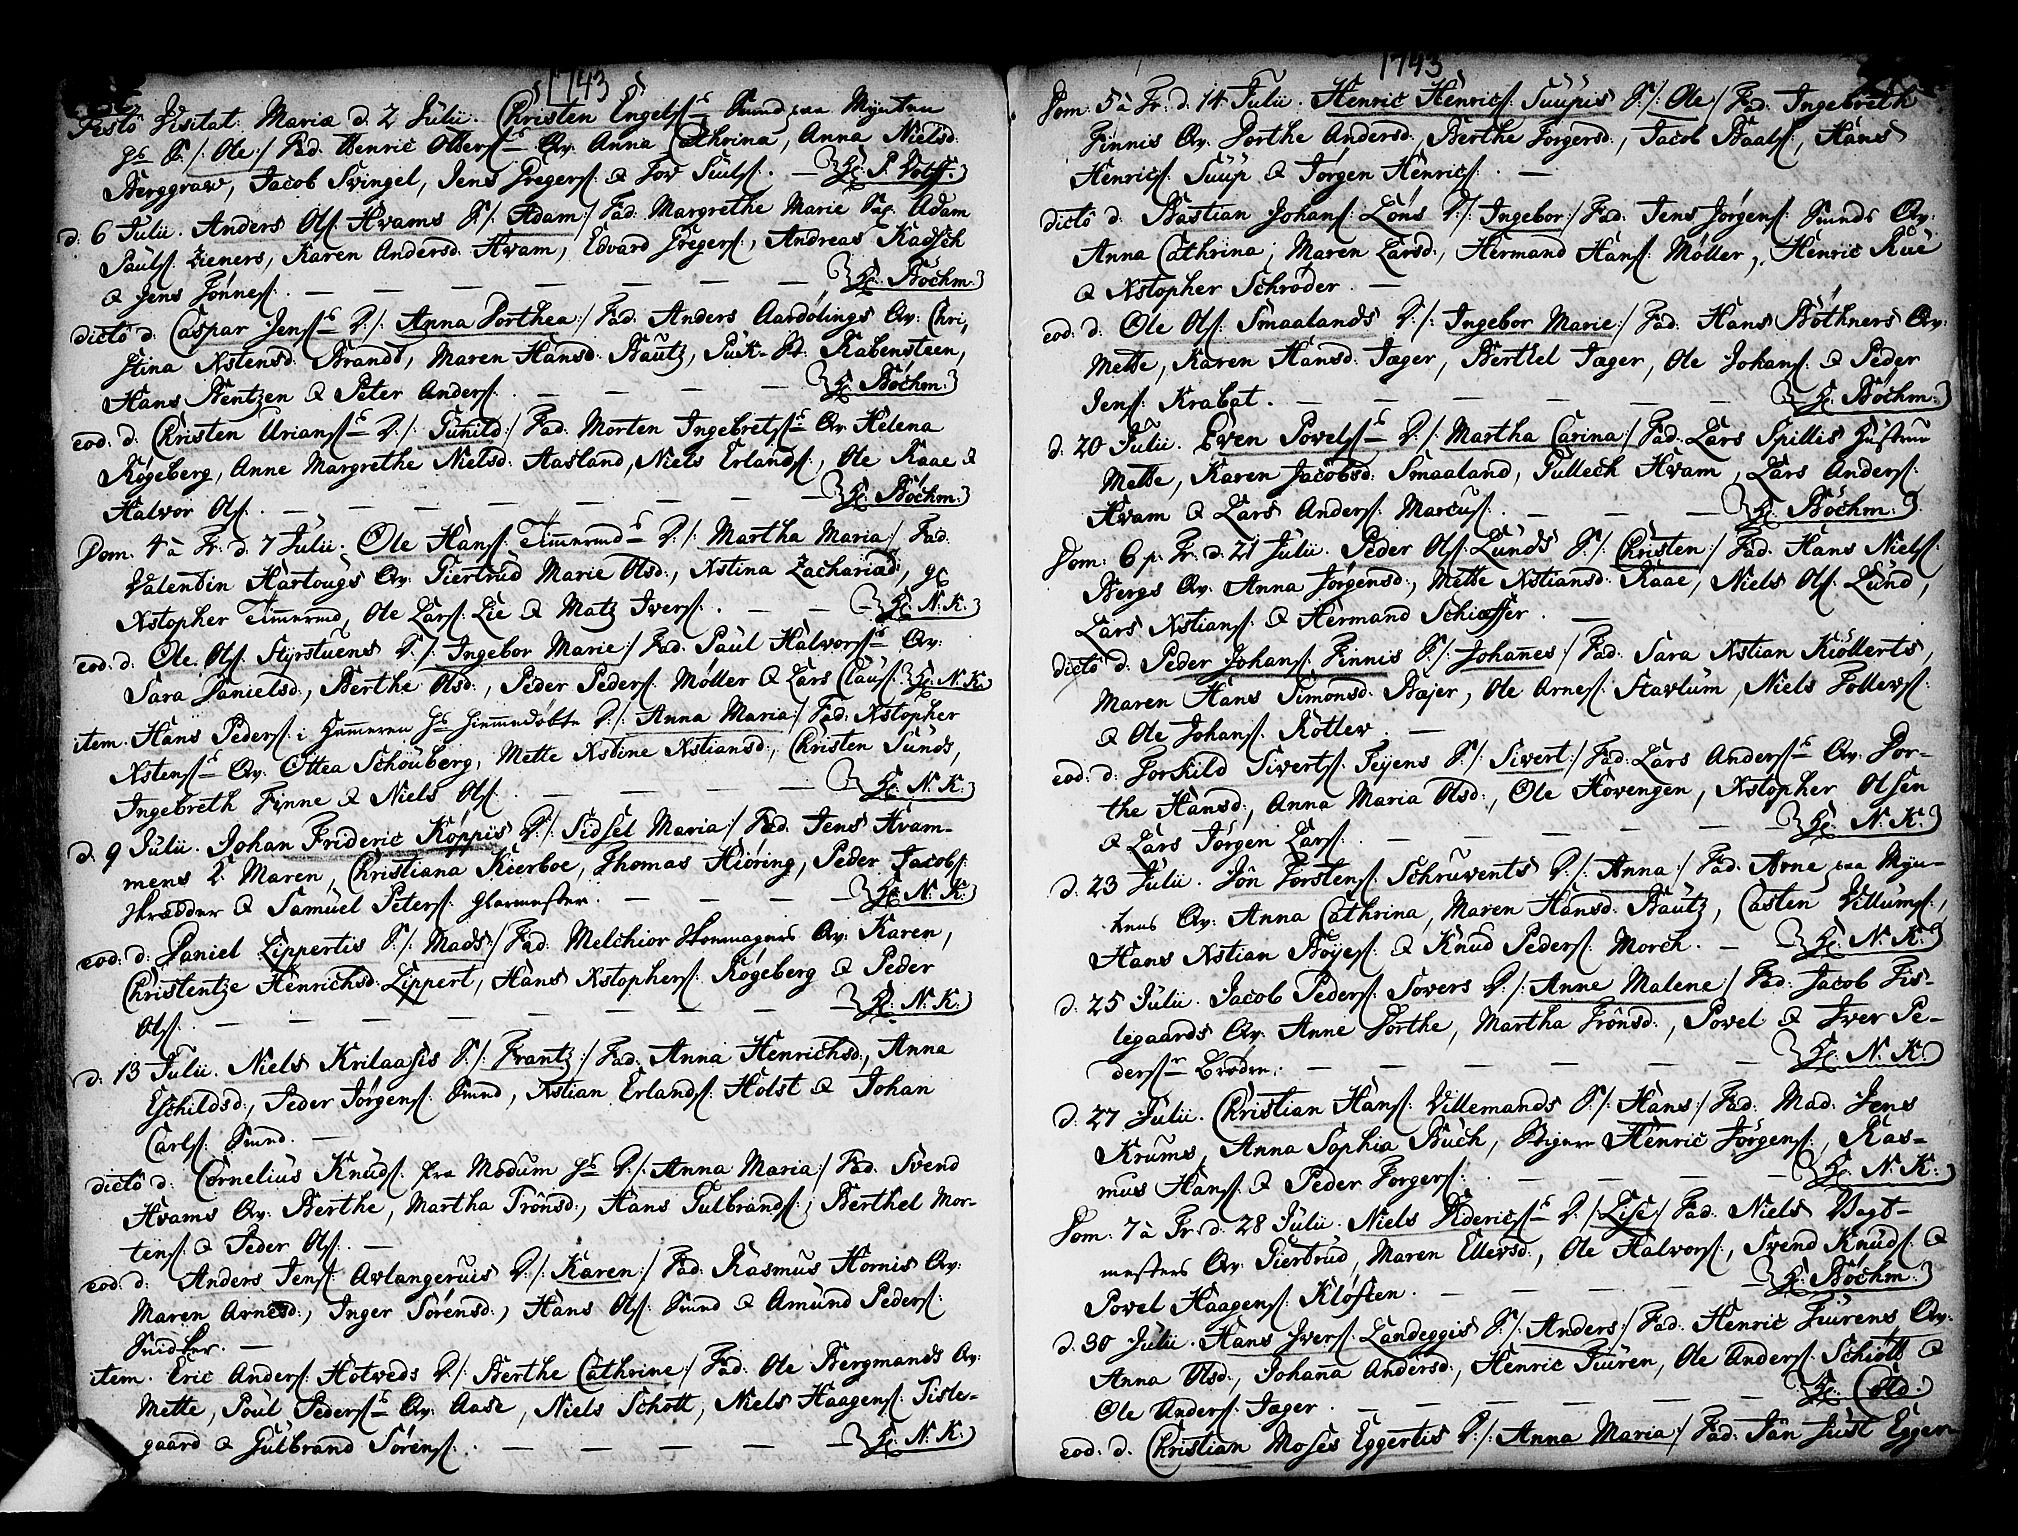 1743
Festô Visitat: Mariæ d. 2 Julii. Christen Engelss Smed paa Myntens
hs S./: Ole:/ Fad. Henric Olderss Qv. Anna Cathrina, Anna Nielsd:
Berggraw, Jacob Svingel, Jens Gregers: & Tov Seuls: . — H: P. Volff.
d. 6 Julii. Anders Ols: Hvams S./: Adam:/ Fad. Margrethe Marie Adam
Pauls: Zieners, Karen Andersd: Hvam, Edvard Gregers:, Andreas Kadsch
& Jens Jônnes: . — — — H: Bôchm.
dictô d: Caspar Jenss D./: Anna Dorthea:/ Fad. Anders Aardôlings Qv. Chri,
stina Xstensd: Brandt, Maren Hansd: Bautz, Rabensteen,
Hans Bentzen & Peter Anders: . — — — H: Bôchm.
eod: d: Christen Urianss D./: Gunild:/ Fad: Morten Ingebretss Qv. Helena
Kôgeberg, Anne Margrethe Nielsd: Aasland, Niels Erlands:, Ole Kaae &
Halvor Ols: . — — — H: Bôchm.
Dom. 4 à Fr: d. 7 Julii. Ole Hans: Timermds D./: Martha Maria:/ Fad:
Valentin Hartougs Qv. Giertrud Marie Olsd:, Xstina Zachariad:,
Xstopher Timermd, Ole Lars: Lie & Matz Ivers: . — — H: N. K.
eod. d: Ole Ols: Styrstuens D./: Ingebor Marie:/ Fad. Paul Halvorss Qv.
Sara Danielsd:, Berthe Olsd:, Peder Peders: Môller & Lars Claus: H: N. K.
item. Hans Peders: i Hammeren hs hiemedôbte D./: Anna Maria:/ Fad: Xstopher
Xstenss Qv. Ottea Schouberg, Mette Xstine Xstiansd:, Christen Sunds,
Ingebreth Finne & Niels Ols: . — — — H: N. K.
d. 9 Julii. Johan Frideric Kôppis D./: Sidsel Maria:/ Fad. Jens Hvam-
mens D. Maren, Christiana Kierboe, Thomas Hiôring, Peder Jacobs:
Skrædder & Samuel Peters: glarmester. — — — H: N. K.
eod: d: Daniel Lippertis S./: Mads:/ Fad: Melchior Skomagers Qv. Karen,
Christentze Henrichsd: Lippert, Hans Xstophers: Kôgeberg & Peder
Ols: — — — H: N. K.
d. 13 Julii. Niels Krilaasis S./: Frantz:/ Fad. Anna Henrichsd:, Anna
Eschildsd:, Peder Jôrgens: Smed, Xstian Erlands: Holst & Johan
Carls: Smed. —
dictô d. Cornelius Knuds: fra Modum hs D./: Anna Maria:/ Fad. Svend
Hvams Qv. Berthe, Martha Trônsd:, Hans Gulbrands:, Berthel Mor-
tens: & Peder Ols: . —
eod: d: Anders Jens: Avlangeruis D./: Karen:/ Fad: Rasmus Hornis Qv:
Maren Arnesd:, Inger Sôrensd:, Hans Ols: Smed & Amund Peders:
Snidker. —
item. Eric Anders: Hotveds D./: Berthe Cathrine:/ Fad: Ole Bergmands Qv:
Mette, Poul Pederss Qv. Aase, Niels Schott, Niels Haagens: Fisle-
gaard & Gulbrand Sôrens: . — — — H: N. K.
1743
Dom: 5 à Fr: d. 14 Julii. Henric Henrics: Suupis S./: Ole:/ Fad. Ingebreth
Finnis Qv. Dorthe Andersd:, Berthe Jorgersd:, Jacob Baals:, Hans
Henrics: Suup & Jôrgen Henrics: . —
dictô d. Bastian Johans: Lôns D./: Ingebor:/ Fad. Jens Jôrgens: Smeds Qv:
Anna Cathrina, Maren Larsd:, Hermand Hans: Môller, Henric Rue
& Xstopher Schrôder. —
eod: d: Ole Ols: Smaalands D./: Ingebor Marie:/ Fad. Hans Bôthners Qv:
Mette, Karen Hansd: Jæger, Berthel Jæger, Ole Johans: & Peder
Jens: Krabat. — — — H: Bôchm:
d. 20 Julii. Even Povelss D./: Martha Carina:/ Fad. Lars Spillis Hustrue
Mette, Karen Jacobsd: Smaaland, Gullech Hvam, Lars Anders:
Hvam & Lars Anders: Marcus: . — — — H: Bôchm:
Dom: 6 p. Fr: d. 21 Julii. Peder Ols: Lunds S./: Christen:/ Fad. Hans Niels:
Bergs Qv. Anna Jôrgensd:, Mette Xstiansd: Kaae, Niels Ols: Lund,
Lars Xstians: & Hermand Schiæffer. —
dictô d. Peder Johans: Finnis S./: Johanes:/ Fad. Sara Xstian Kiôllerts,
Maren Hans Simonsd: Bæjer, Ole Arnes: Stavlum, Niels Follevs:
& Ole Johans: Kottev. —
eod: d: Torkild Siverts: Teijens S./: Sivert:/ Fad: Lars Anderss Qv. Dor-
the Hansd:, Anna Maria Olsd:, Ole Hovengen, Xstopher Olsen
& Lars Jôrgen Lars: . — — — H: N. K.
d. 23 Julii. Jôn Torstens: Schruvents D./: Anna:/ Fad. Arne paa Myn-
tens Qv: Anna Cathrina, Maren Hansd: Bautz, Casten Villums:,
Hans Xstian Bôyes: & Knud Peders: Morch. — H: N. K.
d. 25 Julii. Jacob Peders: Sovers D./: Anne Malene:/ Fad. Jacob Fis-
legaards Qv. Anne Dorthe, Martha Trônsd:, Povel & Iver Pe-
ders: Brôdre. — — — H: N. K.
d. 27 Julii. Christian Hans: Villemands S./: Hans:/ Fad. Mad. Jens
Krums, Anna Sophia Buch, Henric Jôrgens:, Ras-
mus Hans: & Peder Jorgers: . — — — H: N. K:
Dom: 7 à Fr: d. 28 Julii. Niels Didericss D./: Lise:/ Fad. Niels Vagt-
mesters Qv. Giertrud, Maren Ellevsd:, Ole Halvors:, Svend Knuds: &
Povel Haagens: Klôften. — — — H: Bôchm:
d. 30 Julii. Hans Ivers: Landeggis S./: Anders:/ Fad. Henric Juurens Qv.
Anna Olsd:, Johana Andersd:, Henric Juuren, Ole Anders: Schiôtt &
Ole Anders: Jæger. — — — H: Cold.
eod: d. Christian Moses Eggertis D./: Anna Maria:/ Fad: Jan Just Egger-